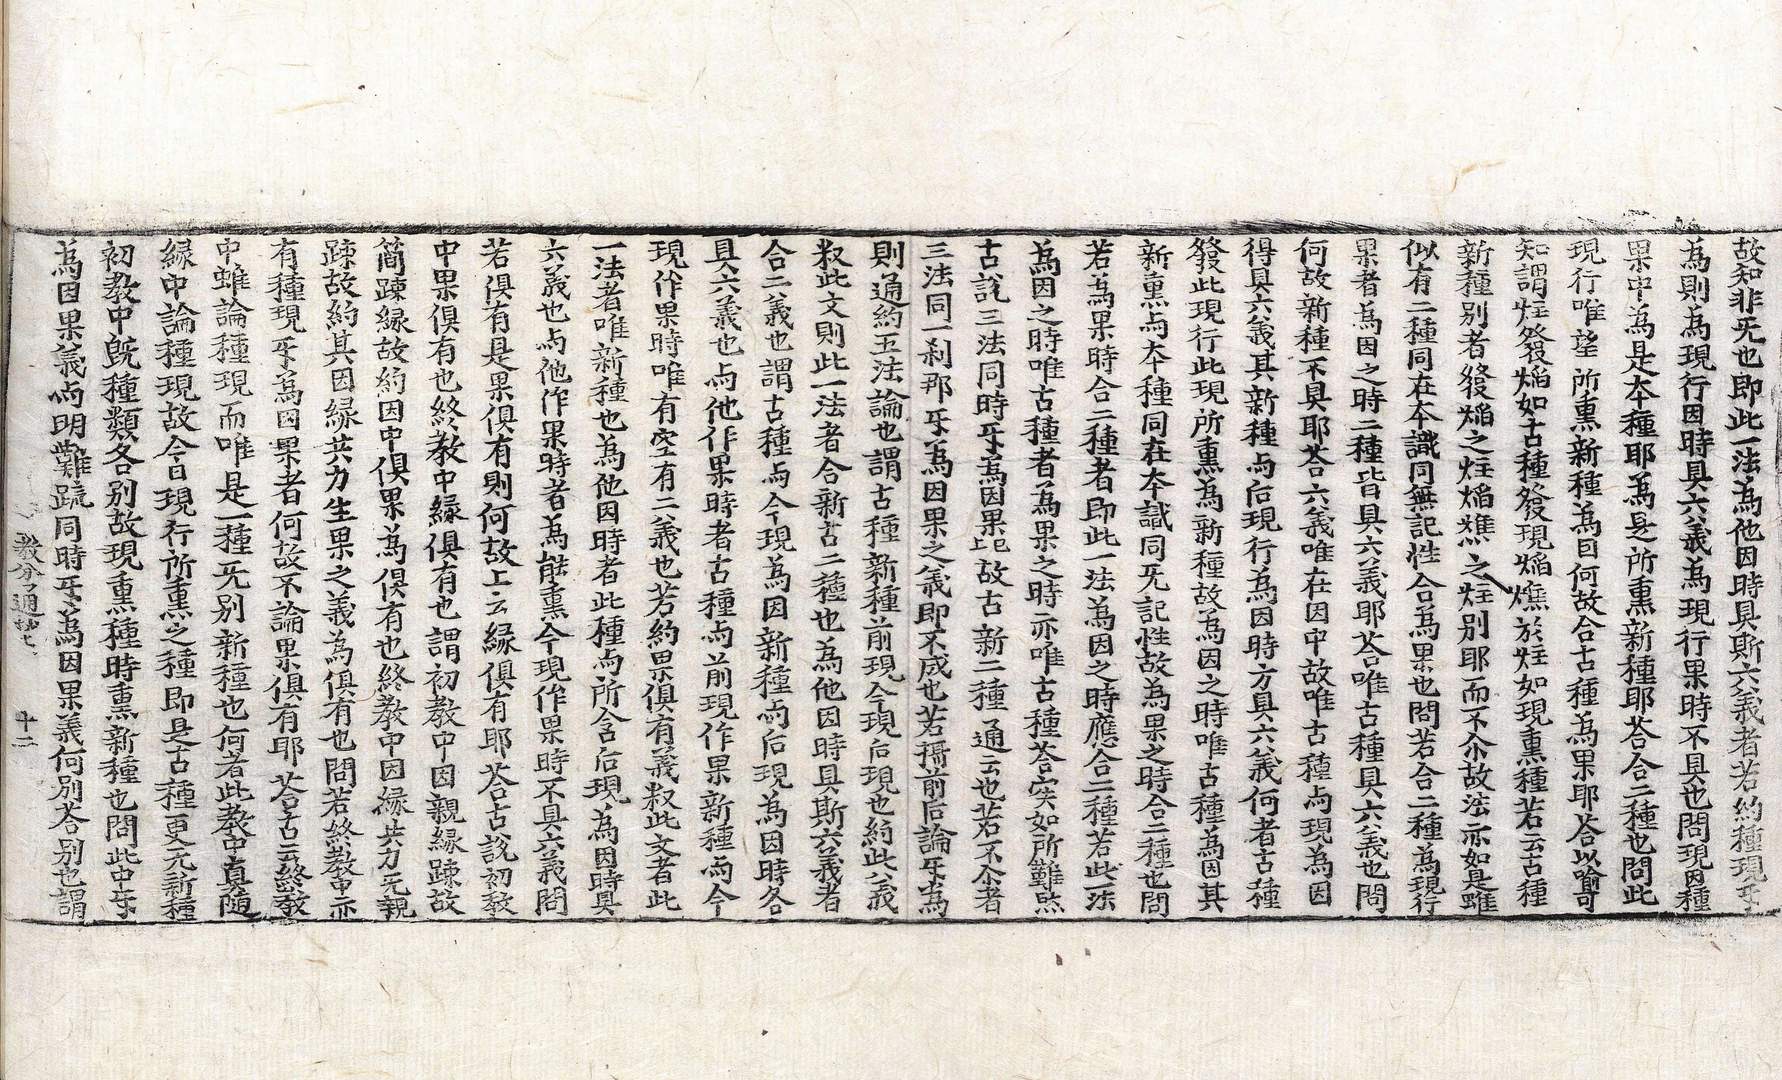 故知非旡也即此一法為他因時具斯六義者若約種現㸦
為則為現行因時具六義為現行果時不具也問現因種
果中為是本種耶為是所熏新種耶荅合二種也問此
現行唯望所熏新種為因何故合古種為果耶荅以喻可
知謂炷發焰如古種發現焰燋於炷如現熏種若云古種
新種別者發焰之炷焰燋之炷別耶而不尒故法亦如是雖
似有二種同在本識同無記性合為果也問若合二種為現行
果者為因之時二種皆具六義耶荅唯古種具六義也問
何故新種不具耶荅六義唯在因中故唯古種与現為因
得具六義其新種与后現行為因時方具六義何者古種
發此現行此現所熏為新種故為因之時唯古種為因其
新熏与本種同在本識同旡記性故為果之時合二種也問
若為果時合二種者即此一法為因之時應合二種若此一法
為因之時唯古種者為果之時亦唯古種荅实如所難然
古說三法同時㸦為因果已上故古新二種通云也若不尒者
三法同一刹那㸦為因果之義即不成也若攝前后論㸦為
則通約五法論也謂古種新種前現今現后現也約此義
釈此文則此一法者合新古二種也為他因時具斯六義者
合二義也謂古種与今現為因新種与后現為因時各
具六義也与他作果時者古種与前現作果新種与今
現作果時唯有空有二義也若約果俱有義釈此文者此
一法者唯新種也為他因時者此種与所含后現為因時具
六義也与他作果時者為能熏今現作果時不具六義問
若俱有是果俱有則何故上云緣俱有耶荅古說初教
中果俱有也終教中緣俱有也謂初教中因親緣疎故
簡疎緣故約因中俱果為俱有也終教中因緣共力旡親
疎故約其因緣共力生果之義為俱有也問若終教中亦
有種現㸦為因果者何故不論果俱有耶荅古云終教
中雖論種現而唯是一種旡別新種也何者此教中真随
緣中論種現故今日現行所熏之種即是古種更旡新種
初教中旣種類各別故現熏種時熏新種也問此中㸦
為因果義与明難䟽同時㸦為因果義何別荅別也謂
教分了通抄七 十二